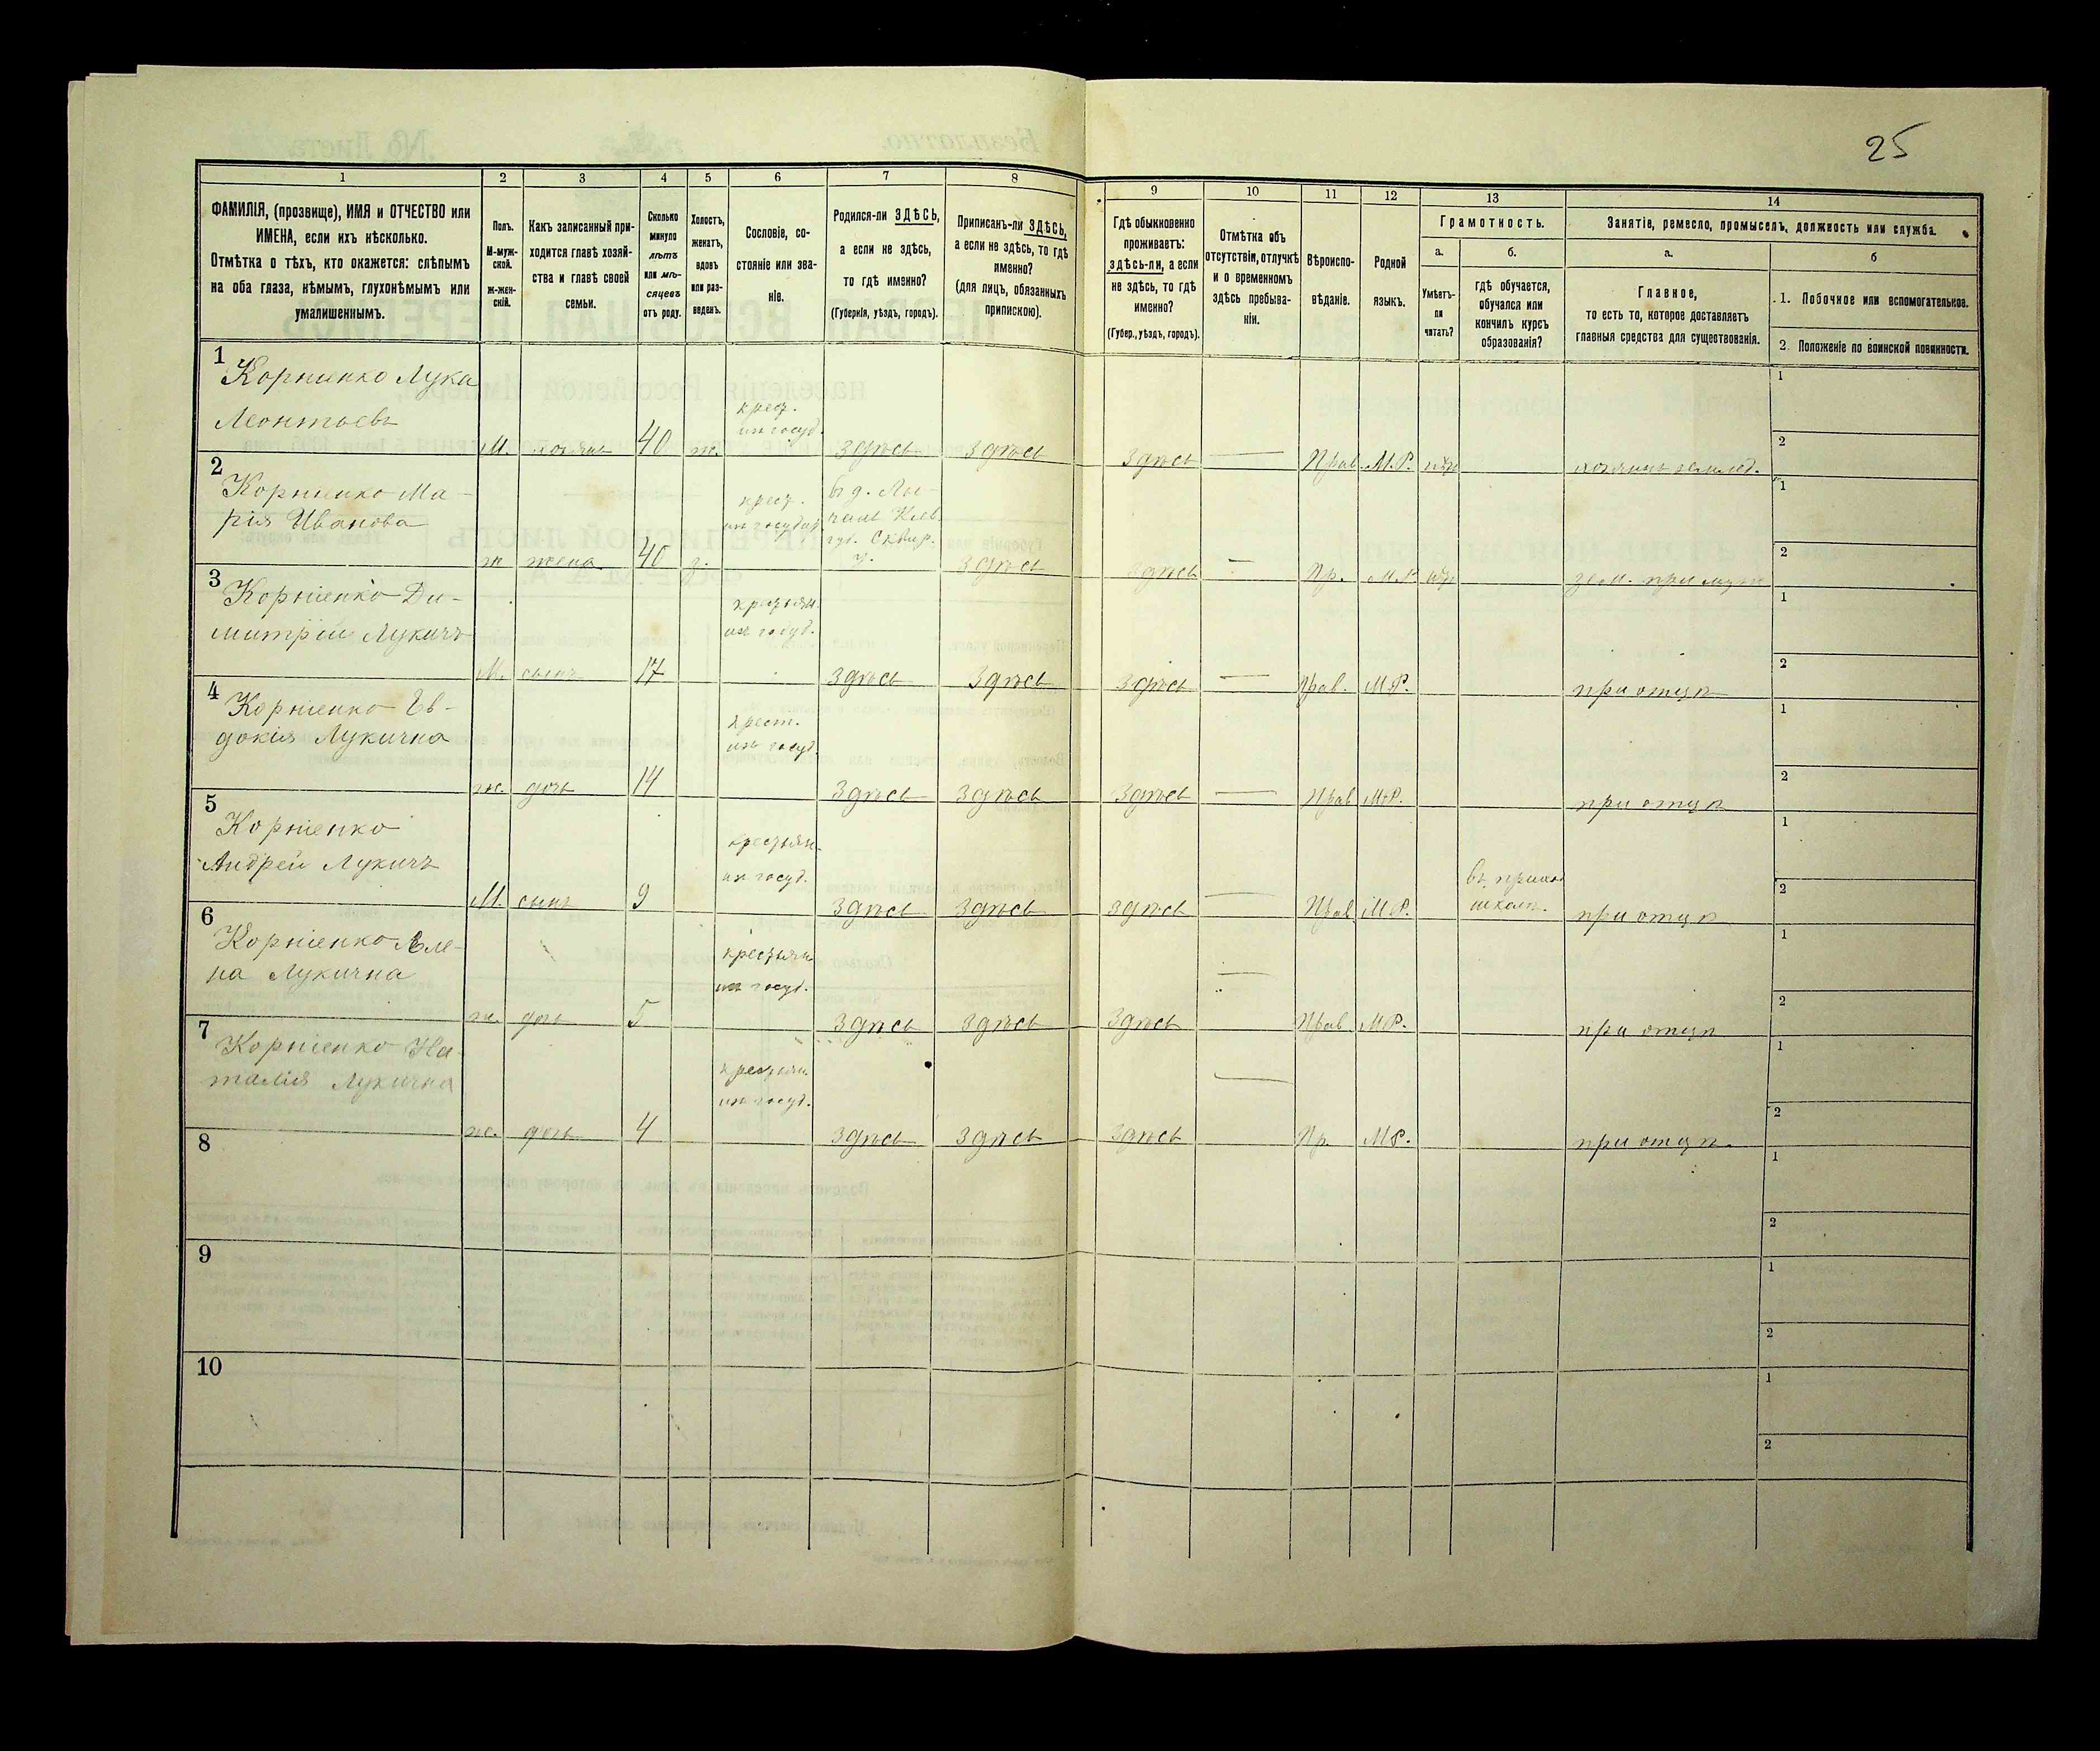 25
1 2 3 4 5 6 7 8 9 10 11 12 13 14
ФАМИЛІЯ, (прозвище), ИМЯ и ОТЧЕСТВО или
ИМЕНА, если ихъ нѣсколько.
Отмѣтка о тѣхъ, кто окажется: слѣпымъ
на оба глаза, нѣмымъ, глухонѣмымъ или
умалишеннымъ.
Полъ.
М-муж-
ской.
Ж-жен-
скій.
Какъ записанный при-
ходится главѣ хозяй-
ства и главѣ своей
семьи.
Сколько
минуло
лѣтъ
или мѣ-
сяцевъ
отъ роду.
Холостъ,
женатъ,
вдовъ
или раз-
веденъ.
Сословіе, со-
стояніе или зва-
ніе.
Родился-ли ЗДѢСЬ,
а если не здѣсь,
то гдѣ именно?
(Губернія, уѣздъ, городъ).
Приписанъ-ли ЗДѢСЬ,
а если не здѣсь, то гдѣ
именно?
(для лицъ, обязанныхъ
припискою).
Гдѣ обыкновенно
проживаетъ:
здѣсь-ли, а если
не здѣсь, то гдѣ
именно?
(Губер., уѣздъ, городъ).
Отмѣтка объ
отсутствіи, отлучкѣ
и о временномъ
здѣсь пребыва-
ніи.
Вѣроиспо-
вѣданіе.
Родной
языкъ.
Грамотность.
а.
Умѣетъ-
ли
читать?
б.
гдѣ обучается,
обучался или
кончилъ курсъ
образованія?
Занятіе, ремесло, промыселъ, должность или служба.
а.
Главное,
то есть то, которое доставляетъ
главныя средства для существованія.
б
1. Побочное или вспомогательное.
2. Положеніе по воинской повинности.
1
Корніенко Лука
Леонтьевъ
М. хозяинъ 40 ж.
крест.
изъ госуд.
здѣсь здѣсь здѣсь — Прав. М.Р. нѣтъ хозяинъ землед.
1
2
2
Корніенко Ма-
рія Иванова
ж жена 40 з.
крест.
изъ государ.
губ. Сквир.
у.
здѣсь здѣсь — Пр. М.Р. нѣтъ зем. при мужѣ
1
2
3
Корніенко Ди-
митрій Лукичъ
М. сынъ 17
крестьян.
изъ госуд.
здѣсь здѣсь здѣсь — Прав. М.Р. при отцѣ
1
2
4
Корніенко Ев-
докія Лукична
ж. дочь 14
крест.
изъ госуд.
здѣсь здѣсь здѣсь — Прав М.Р. при отцѣ
1
2
5
Корніенко
Андрей Лукичъ
М. сынъ 9
крестьян.
изъ госуд.
здѣсь здѣсь здѣсь — Прав М.Р.
въ приход
школѣ.
при отцѣ
1
2
6
Корніенко Еле-
на Лукична
ж. дочь 5
крестьян
изъ госуд.
здѣсь здѣсь здѣсь — Прав М.Р. при отцѣ
1
2
7
Корніенко На-
талія Лукична
ж. дочь 4
крестьян.
изъ госуд.
здѣсь здѣсь здѣсь — Пр. М.Р. при отцѣ.
1
2
8
1
2
9
1
2
10
1
2